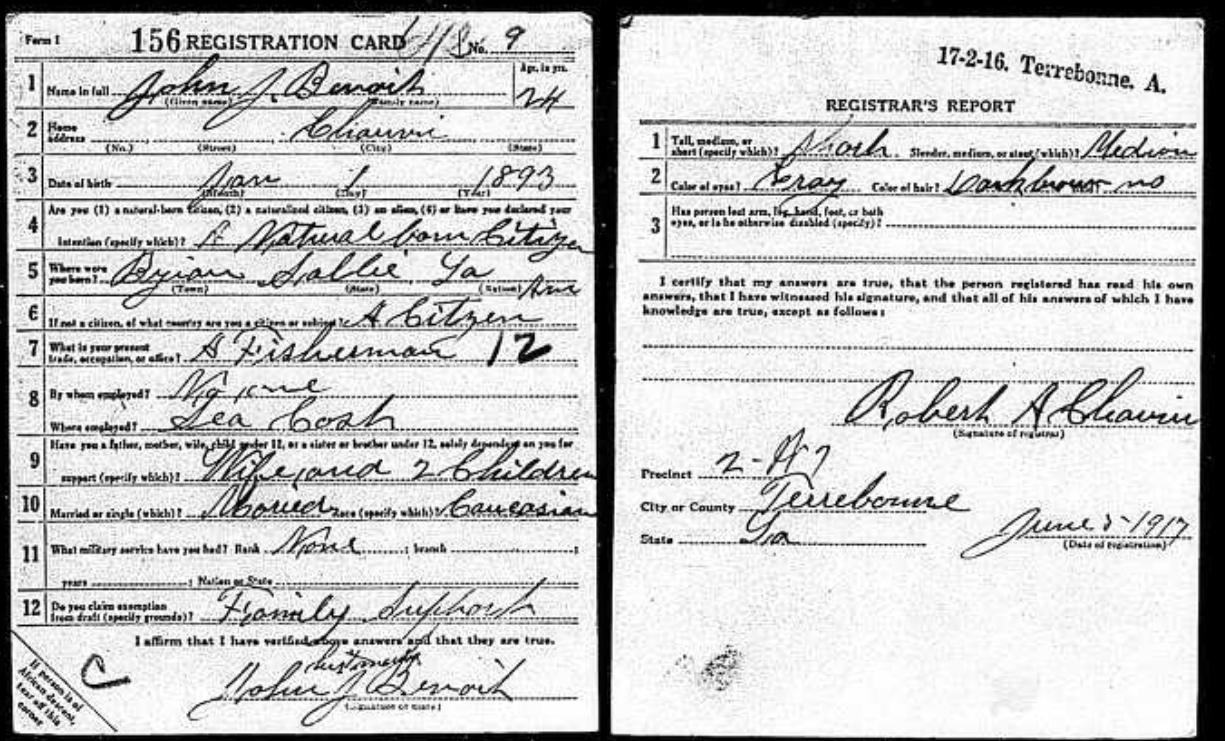 Form 1 156 REGISTRATION CARD No. 9
1 Name in full John J. Benoit Age, in yrs. 24
(Given name) (Family name)
2 Home address Chauvin
(No.) (Street) (City) (State)
3 Date of birth Jan 1 1893
(Month) (Day) (Year)
4 Are you (1) a natural-born citizen, (2) a naturalized citizen, (3) an alien, (4) or have you declared your
intention (specify which)? A Natural born Citizen
5 Where were you born? Sallie La
(Town) (State) (Nation)
6 If not a citizen, of what country are you a citizen or subject? A Citzen
7 What is your present trade, occupation, or office? A Fisherman 12
8 By whom employed?
Where employed? Sea Cost
9 Have you a father, mother, wife, child under 12, or a sister or brother under 12, solely dependent on you for
support (specify which)? Wife and 2 Children
10 Married or single (which)? Maried Race (specify which)? Caucasian
11 What military service have you had? Rank None ; branch ;
years ; Nation or State
12 Do you claim exemption from draft (specify grounds)? Family Suport
I affirm that I have verified above answers and that they are true.
John J Benoit
(Signature or mark)
If person is of
African descent,
tear off this
corner
C
17-2-16. Terrebonne. A.
REGISTRAR'S REPORT
1 Tall, medium, or short (specify which)? Short Slender, medium, or stout (which)? Medium
2 Color of eyes? Gray Color of hair? Dark brown no
3 Has person lost arm, leg, hand, foot, or both
eyes, or is he otherwise disabled (specify)?
I certify that my answers are true, that the person registered has read his own
answers, that I have witnessed his signature, and that all of his answers of which I have
knowledge are true, except as follows:
Robert A Chauvin
(Signature of registrar)
Precinct 2-
City or County Terrebonne
State La
June 5-1917
(Date of registration)